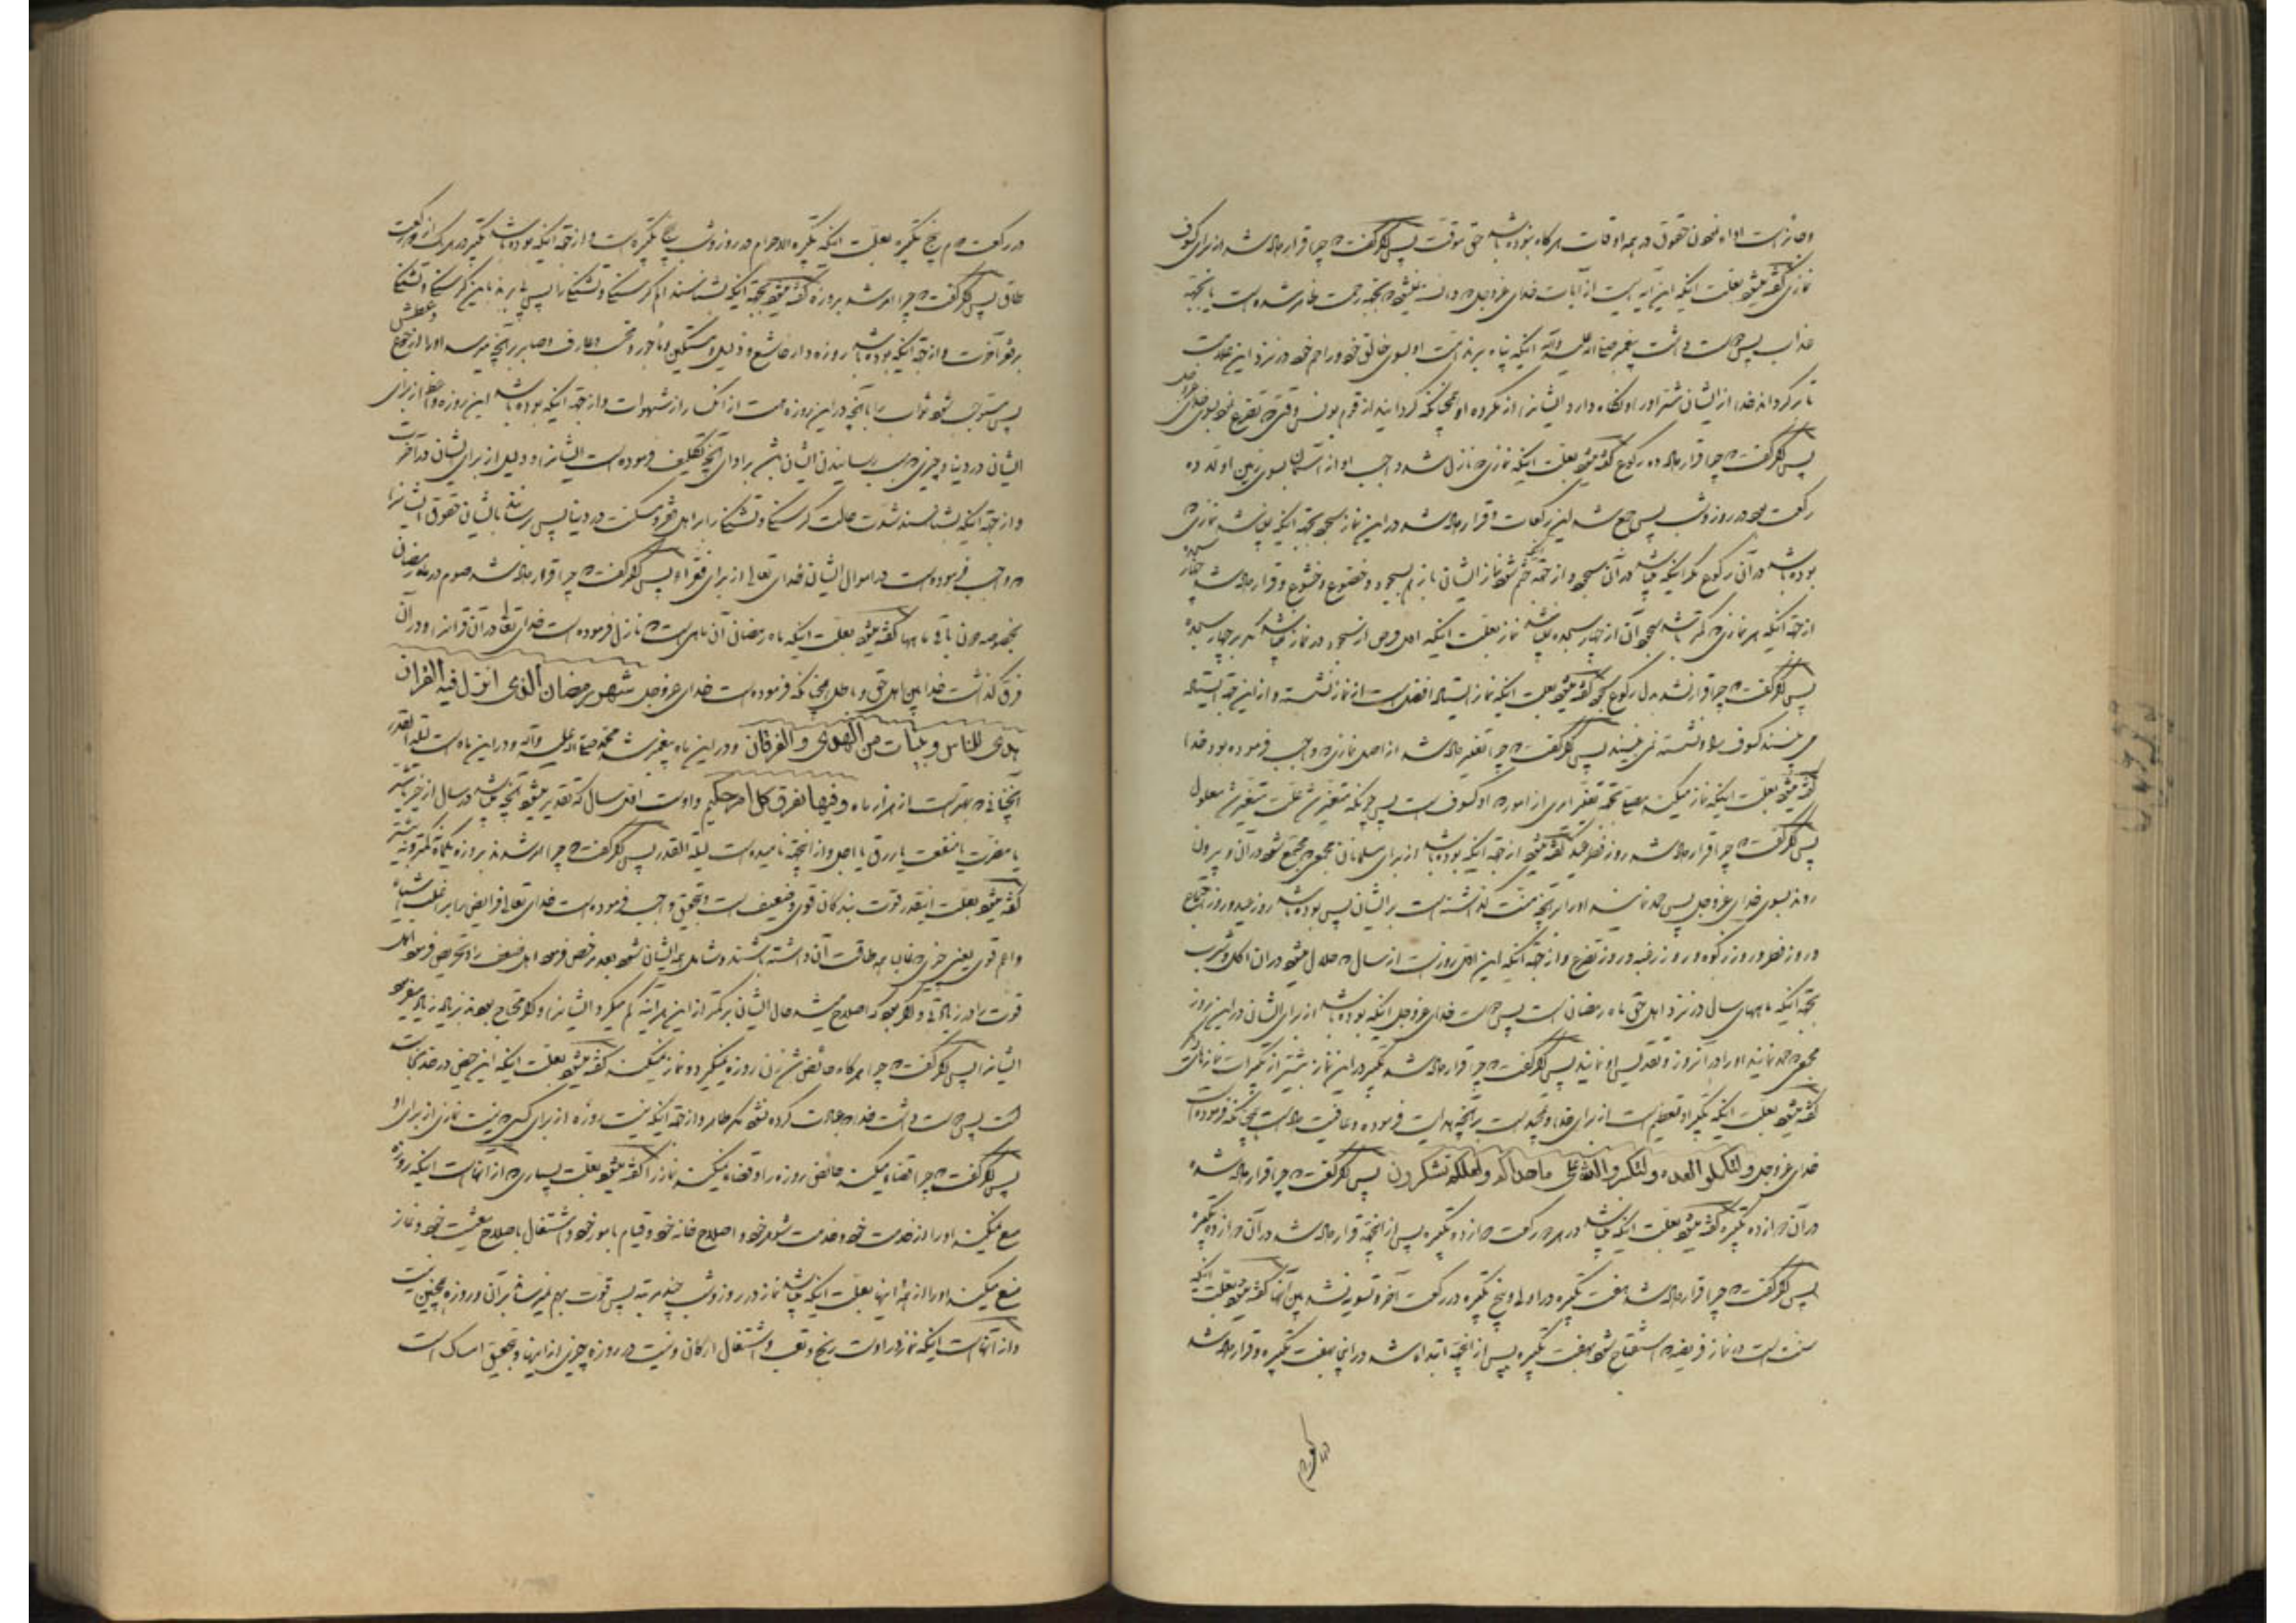 و جایز است اداء نمودن حقوق در همه اوقات هر گاه بوده باشد حق موقت پس اگر گفت که چرا قرار داده شد از برای کسوف
نمازی گفته میشود بعلت اینکه این آیه ایست از آیات خدای عزوجل که دانسته نمیشود که بجهة رحمت ظاهر شده است یا بجهة
عذاب پس دوست داشت پیغمبر صلی الله علیه و آله اینکه پناه برند امت او بسوی خالق خود و راحم خود در نزد این علامت
تا بر گرداند خدا از ایشان شر او را و نگاه دارد ایشانرا از مکروه او همچنانکه گردانید از قوم یونس وقتی که تضرع نمودند بسوی خدای عزوجل
پس اگر گفت که چرا قرار داده شد ده رکوع گفته میشود بعلت اینکه نمازی که نازل شد واجب او از آسمان بسوی زمین اولا ده
رکعت بود در روز و شب پس جمع شد این رکعات و قرار داده شد در این نماز سجود بجهة اینکه نمیباشد نمازی که
بوده باشد در آن رکوع مگر اینکه میباشد در آن سجود و از جهة اینکه ختم شود نماز ایشان باز هم بسجود و خضوع و خشوع و قرار داده شد چهار سجده
از جهة اینکه هر نمازی که کمتر باشد سجود آن از چهار سجده نمیباشد نماز بعلت اینکه اول فرض از سجود در نماز نمیباشد مگر بر چهار سجده
پس اگر گفت که چرا قرار نشد بدل رکوع سجود گفته میشود بعلت اینکه نماز ایستاده افضل است از نماز نشسته و از این جهة ایستاده
می بیند کسوف را و نشسته نمی بیند پس اگر گفت که چرا تغییر داده شد از اصل نمازی که واجب فرموده بود خدا
گفته میشود بعلت اینکه نماز میکند بجهة تغیر امری از امور که او کسوف است پس چونکه متغیر شد علت متغیر شد معلول
پس اگر گفت که چرا قرار داده شد روز فطر عید گفته میشود از جهة اینکه بوده باشد از برای مسلمانان مجمعی که مجتمع شوند در آن و بیرون
روند بسوی خدای عزوجل پس حمد نمایند او را بر آنچه منت گذاشته است بر ایشان پس بوده باشد روز عید و روز اجتماع
و روز فطر و روز زکوة و روز رغبه و روز تضرع و از جهة اینکه این اول روز است از سال که حلال میشود در آن اکل و شرب
بجهة اینکه ماههای سال در نزد اهل حق ماه رمضان است پس دوست خدای عزوجل اینکه بوده باشد از برای ایشان در این روز
مجمعی که حمد نمایند او را در آنروز و تقدیس او نمایند پس اگر گفت که چرا قرار داده شد تکبیر در این نماز بیشتر از تکبیرات نمازهای دیگر
گفته میشود بعلت اینکه تکبیر او تعظیم است از برای خدا و تمجید است بر آنچه هدایت فرموده و عافیت داده است همچنانکه فرموده است
خدای عزوجل ولتکملوا العدة ولتکبروا الله علی ما هداکم ولعلکم تشکرون پس اگر گفت که چرا قرار داده شده
در آن دوازده تکبیره گفته میشود بعلت اینکه میباشد در هر دو رکعت دوازده تکبیره پس از اینجهة قرار داده شد در آن دوازده تکبیره
پس اگر گفت که چرا قرار داده شد هفت تکبیره در اولی و پنج تکبیره در رکعت آخر و تسویه نشد بین آنها گفته میشود بعلت اینکه
سنت است در نماز فریضه که استفتاح شود بهفت تکبیره پس از اینجهة ابتداء شد در اینجا بهفت تکبیره و قرار داده شد
در رکعت دوم
در رکعت دوم پنج تکبیره بعلت اینکه تکبیرة الاحرام در روز و شب پنج تکبیره است و از جهة اینکه بوده باشد تکبیر در هر یک از دو رکعت
طاق پس اگر گفت که چرا امر شد بروزه گفته میشود بجهة اینکه بشناسند الم گرسنگی و تشنگی را پس پی برند باین گرسنگی و تشنگی
بر فقر آخرت و از جهة اینکه بوده باشد روزه دار خاشع و ذلیل و مستکین و مأجور و محتسب و عارف و صابر بر آنچه میرسد او را از جوع و عطش
پس مستوجب شود ثواب را با آنچه در این روزه هست از انکسار از شهوات و از جهة اینکه بوده باشد این روزه واعظ از برای
ایشان در دنیا و چیزی که سبب رسانیدن ایشان باشد بر ادای آنچه تکلیف فرموده است ایشانرا و دلیل از برای ایشان در آخرت
و از جهة اینکه بشناسند شدت حالت گرسنگی و تشنگی را بر اهل فقر و مسکنت در دنیا پس رسانند بایشان حقوق ایشانرا
که واجب فرموده است در اموال ایشان خدای تعالی از برای فقراء پس اگر گفت که چرا قرار داده شد صوم در ماه رمضان
بخصوصه دون باقی ماهها گفته میشود بعلت اینکه ماه رمضان آن ماهی است که نازل فرموده است خدای تعالی در آن قرآنرا و در آن
فرق گذاشت خدا بین اهل حق و باطل همچنانکه فرموده است خدای عزوجل شهر رمضان الذی انزل فیه القران
هدی للناس و بینات من الهدی و الفرقان و در این ماه پیغمبر شد محمد صلی الله علیه و آله و در این ماه است لیلة القدر
آنچنانی که بهتر است از هزار ماه و فیها یفرق کل امر حکیم و اوست اول سال که تقدیر میشود آنچه میباشد در سال از خیر یا شر
یا مضرت یا منفعت یا رزق یا اجل و از اینجهة نامیده است لیلة القدر پس اگر گفت که چرا امر شدند بروزه یکماه نه کمتر و نه بیشتر
گفته میشود بعلت اینقدر قوت بندگان قوی و ضعیف است و بتحقیق واجب فرموده است خدای تعالی فرایض را بر اغلب اشیاء
و اعم قوی یعنی چیزی که غالب همه طاقت آن داشته باشند و شامل همه ایشان شود بعد رخص فرمود اهل ضعف را و تحریص فرمود اهل
قوت را در زیادتی و اگر بود که اصلاح میشد حال ایشان بر کمتر از این هر آینه کم میکرد ایشانرا و اگر محتاج بودند بزیاده زیاد میفرمود
ایشانرا پس اگر گفت که چرا هر گاه حائض شد زن روزه نمیگیرد و نماز نمیکند گفته میشود بعلت اینکه این حیض در حد نجاست
است پس دوست داشت خدا که عبادت کرده نشود مگر طاهر و از جهة اینکه نیست روزه از برای کسی که نیست نمازی از برای او
پس اگر گفت که چرا قضاء میکند حائض روزه را و قضاء نمیکند نماز را گفته میشود بعلت بسیاری که از آنهاست اینکه روزه
منع نمیکند او را از خدمت خود و خدمت شوهر خود و اصلاح خانه خود و قیام بامور خود و اشتغال باصلاح معیشت خود و نماز
منع میکند او را از همه اینها بعلت اینکه میباشد نماز در روز و شب چند مرتبه پس قوت بهم نمیرساند بر آن و روزه همچنین نیست
و از آنهاست اینکه نماز در اوست رنج و تعب و اشتغال ارکان و نیست در روزه چیزی از اینها و بتحقیق امساک است